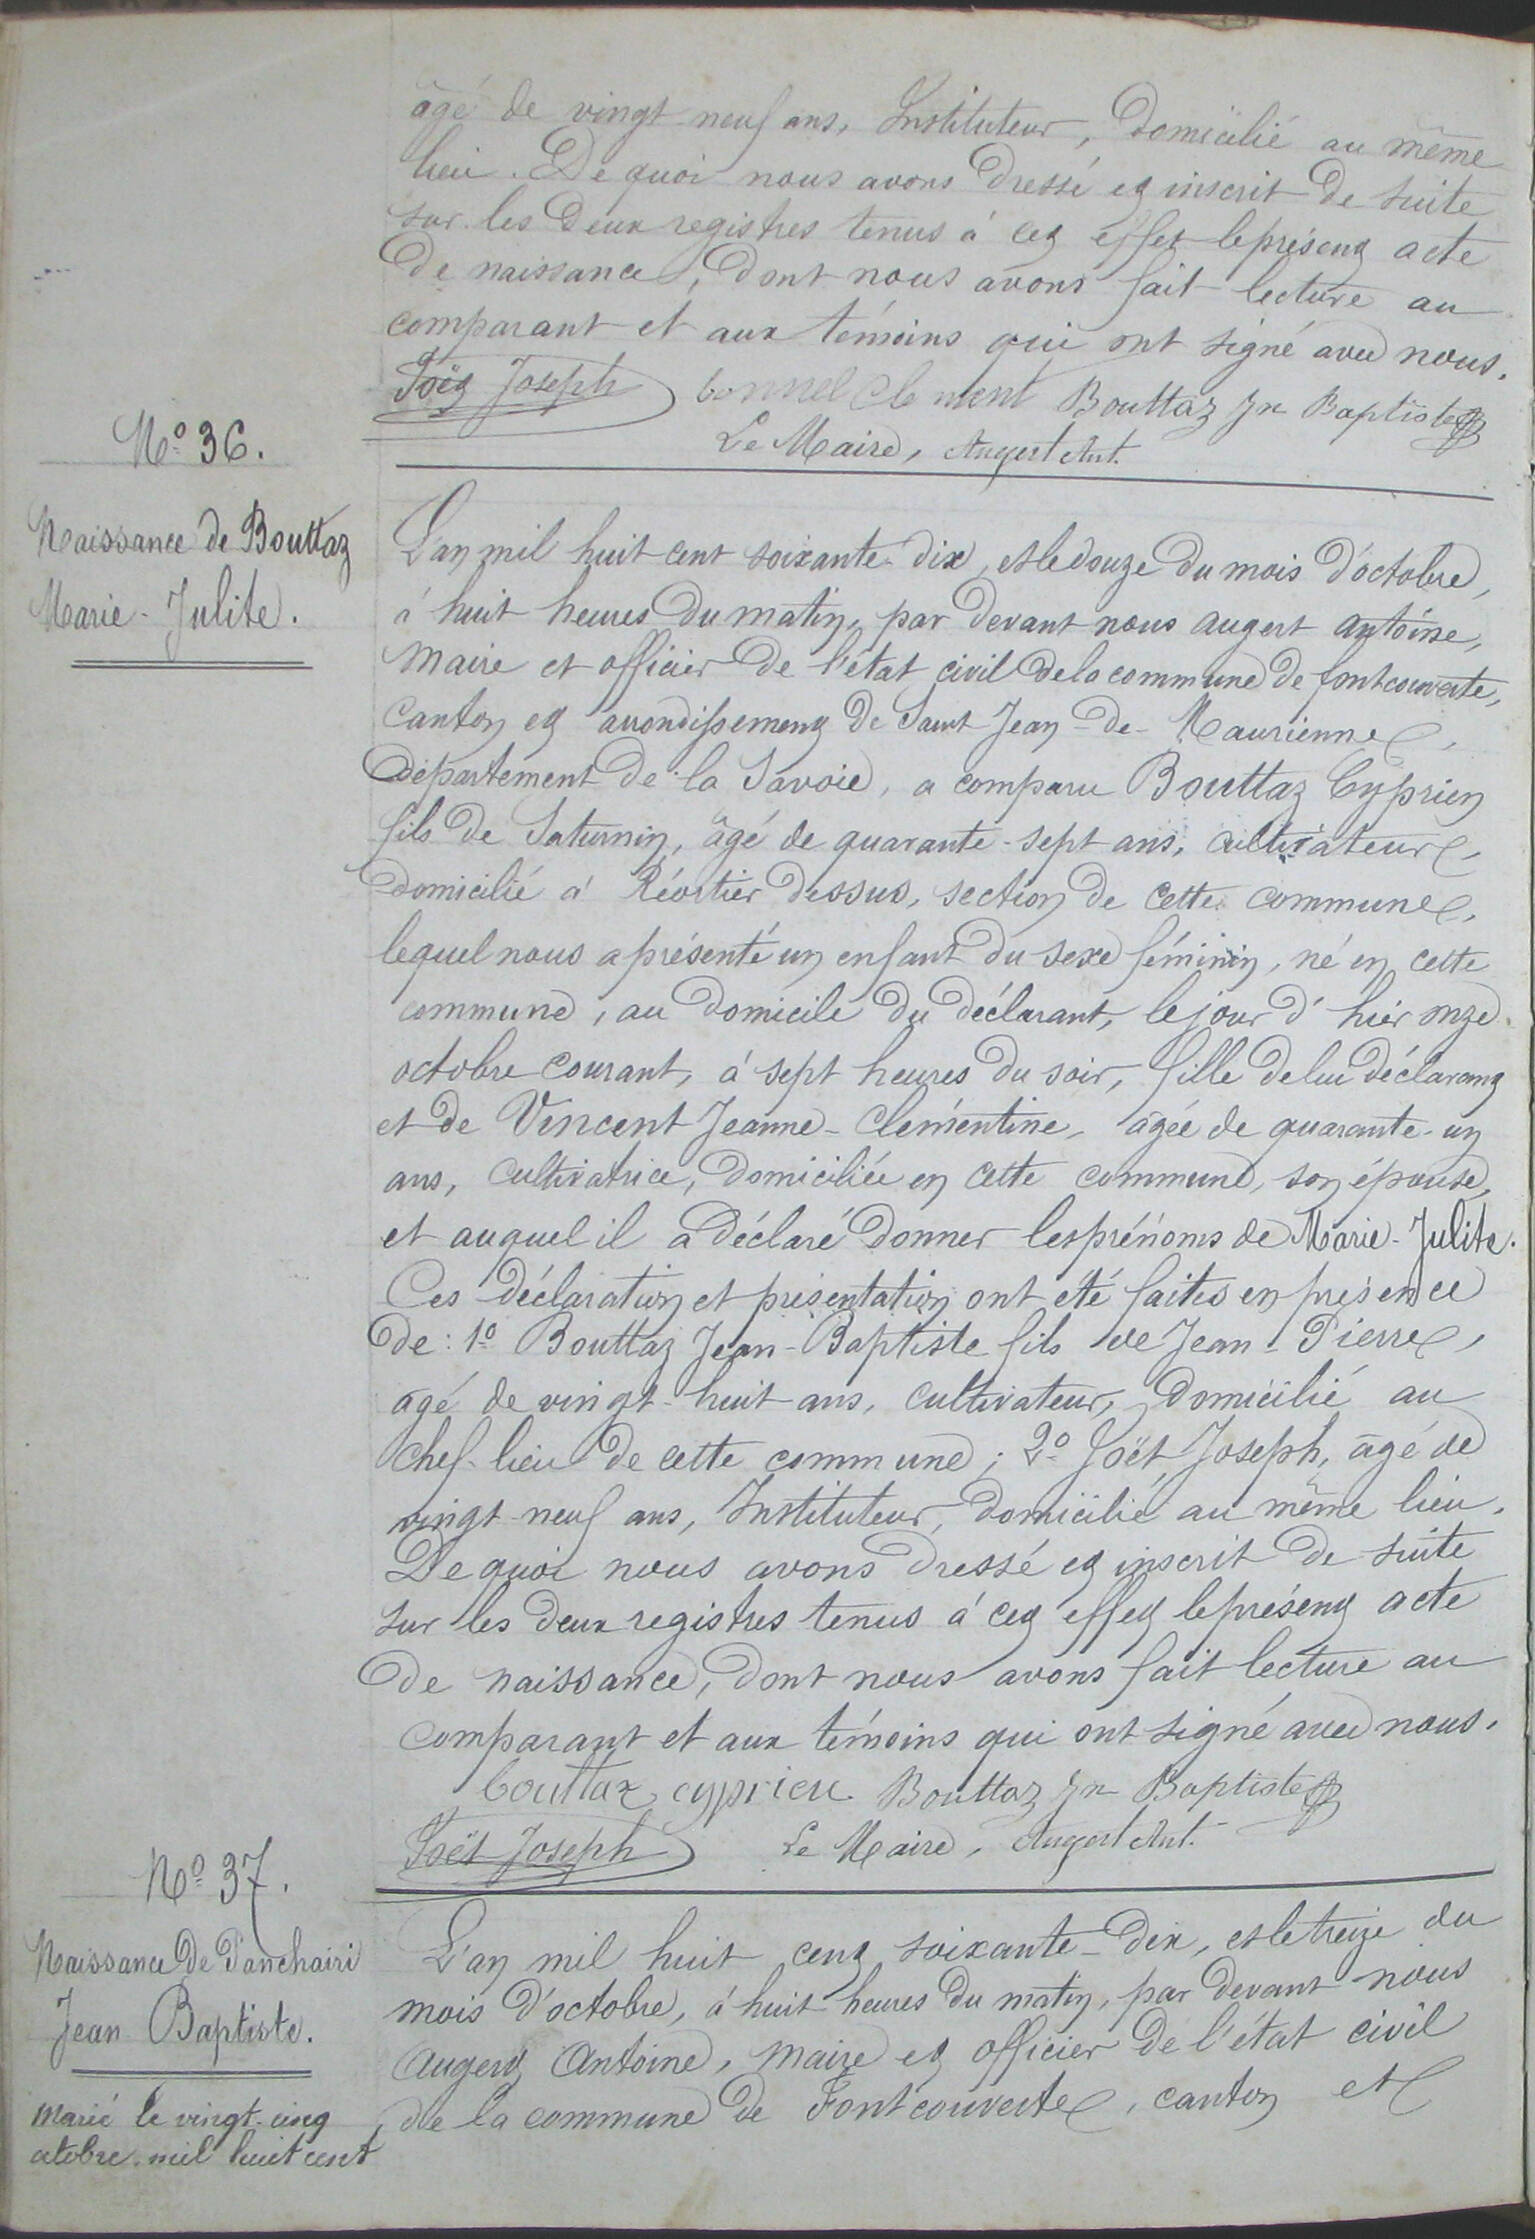 âgé de vingt-neuf ans, Instituteur, domicilié au même
lieu. De quoi nous avons dressé et inscrit de suite
sur les deux registres tenus à cet effet le présent acte
de naissance, dont nous avons fait lecture au
comparant et aux témoins qui ont signé avec nous.
Joët Joseph bonnel clement Bouttaz Jn Baptiste
Le Maire, Augert Ant.
No 36.
Naissance de Bouttaz
Marie-Julite.
L'an mil huit cent soixante-dix, et le douze du mois d'octobre,
à huit heures du matin, par devant nous Augert Antoine,
Maire et officier de l'état civil de la commune de fontcouverte,
canton et arrondissement de Saint Jean-de-Maurienne,
département de la Savoie, a comparu Bouttaz Cyprien
fils de Saturnin, âgé de quarante-sept ans, cultivateur,
domicilié à Révortier dessus, section de cette commune,
lequel nous a présenté un enfant du sexe féminin, né en cette
commune, au domicile du déclarant, le jour d'hier onze
octobre courant, à sept heures du soir, fille de lui déclarant
et de Vincent Jeanne-Clémentine, âgée de quarante-un
ans, cultivatrice, domiciliée en cette commune, son épouse,
et auquel il a déclaré donner les prénoms de Marie-Julite.
Ces déclaration et présentation ont été faites en présence
de: 1o Bouttaz Jean-Baptiste fils de Jean-Pierre,
âgé de vingt-huit ans, cultivateur, domicilié au
chef-lieu de cette commune; 2o Joët Joseph, âgé de
vingt-neuf ans, Instituteur, domicilié au même lieu.
De quoi nous avons dressé et inscrit de suite
sur les deux registres tenus à cet effet le présent acte
de naissance, dont nous avons fait lecture au
comparant et aux témoins qui ont signé avec nous.
bouttaz cyprien Bouttaz Jn Baptiste
Joët Joseph Le Maire, Augert Ant.
No 37.
Naissance de Panchairi
Jean Baptiste.
marié le vingt-cinq
octobre mil huit cent
L'an mil huit cent soixante-dix, et le treize du
mois d'octobre, à huit heures du matin, par devant nous
Augert Antoine, maire et officier de l'état civil
de la commune de Fontcouverte, canton et